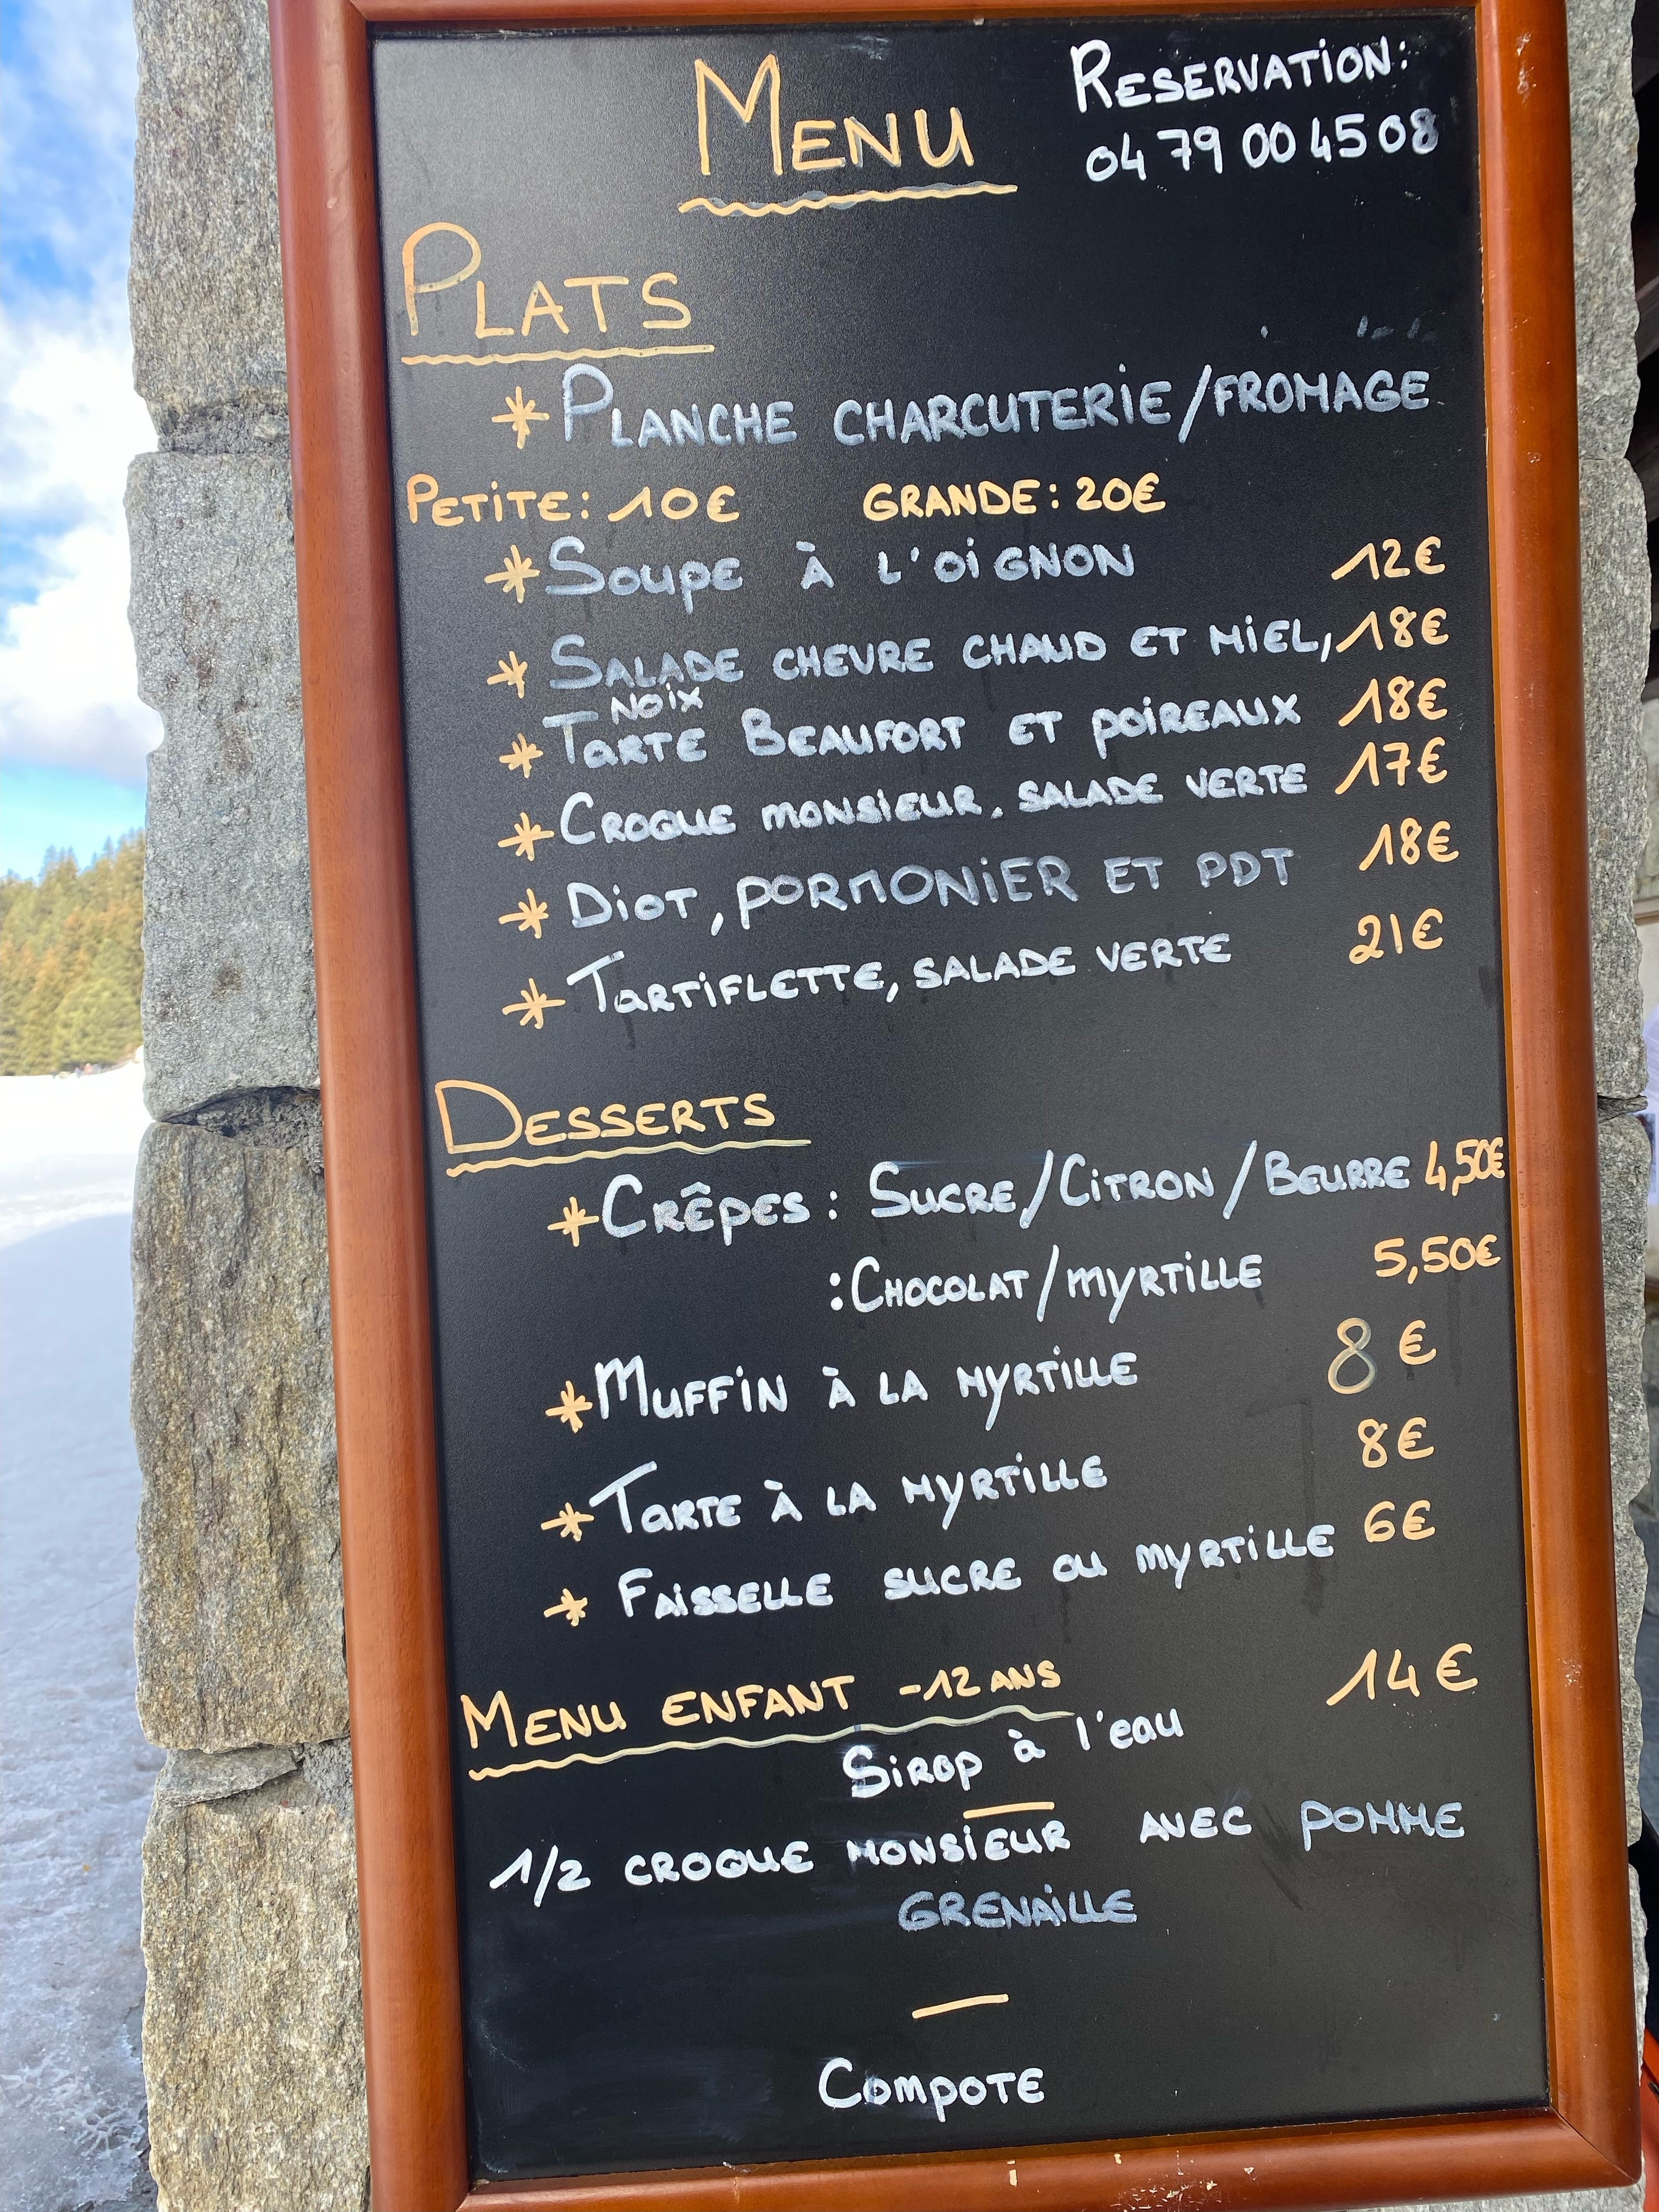 MENU
RESERVATION:
04 79 00 45 08
PLATS
* PLANCHE CHARCUTERIE/FROMAGE
PETITE: 10€ GRANDE: 20€
* SOUPE À L'OIGNON 12€
* SALADE CHEVRE CHAUD ET MIEL, 18€
NOIX
* TARTE BEAUFORT ET POIREAUX 18€
* CROQUE MONSIEUR, SALADE VERTE 17€
* DIOT, PORMONIER ET PDT 18€
* TARTIFLETTE, SALADE VERTE 21€
DESSERTS
* CRÊPES : SUCRE/CITRON/BEURRE 4,50€
: CHOCOLAT/MYRTILLE 5,50€
* MUFFIN À LA MYRTILLE 8€
* TARTE À LA MYRTILLE 8€
* FAISSELLE SUCRE OU MYRTILLE 6€
MENU ENFANT -12 ANS 14€
Sirop à l'eau
1/2 CROQUE MONSIEUR AVEC POMME
GRENAILLE
COMPOTE